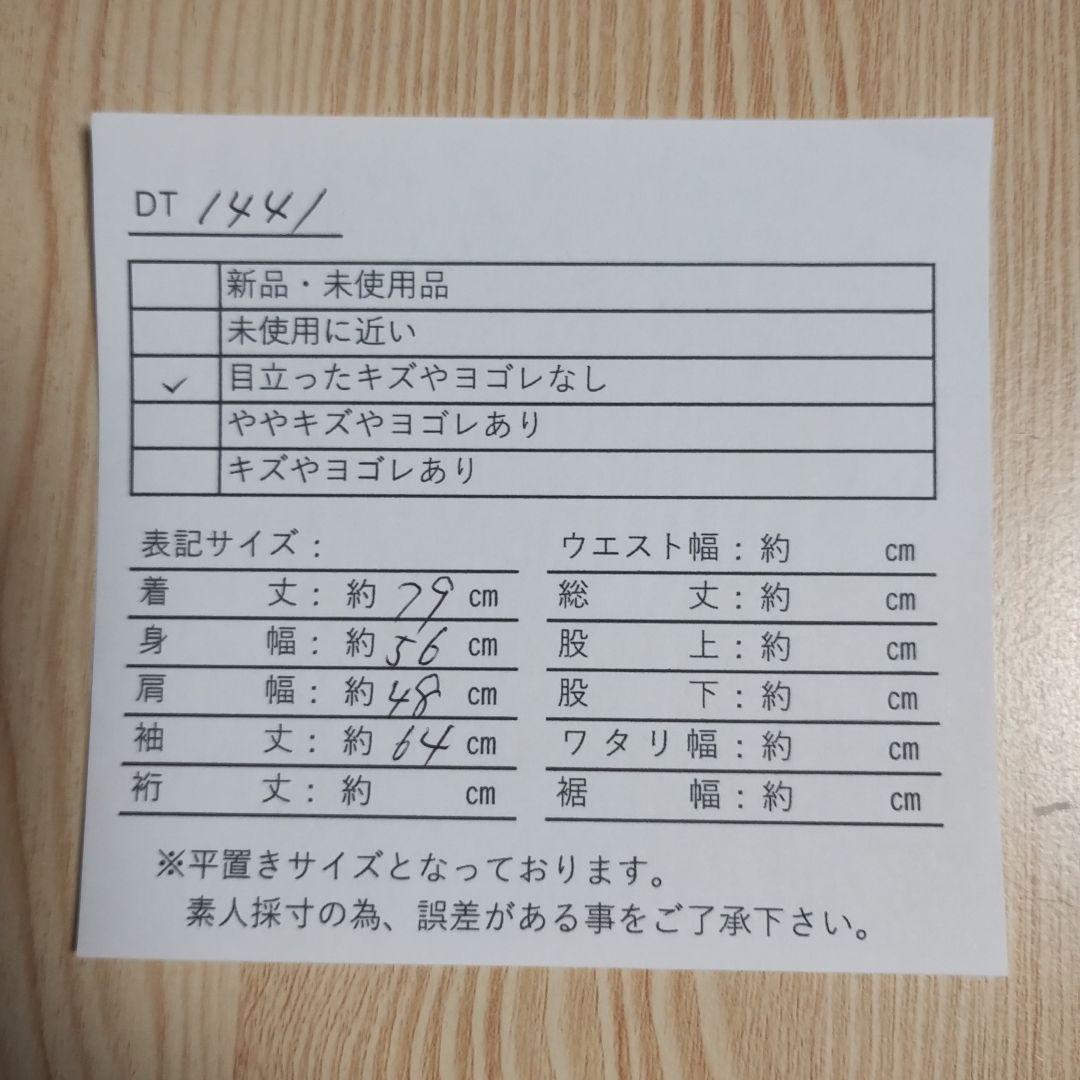 DT 1441
新品・未使用品
未使用に近い
✓ 目立ったキズやヨゴレなし
ややキズやヨゴレあり
キズやヨゴレあり
表記サイズ：
着丈：約 79 ㎝
身幅：約 56 ㎝
肩幅：約 48 ㎝
袖丈：約 64 ㎝
裄丈：約 ㎝
ウエスト幅：約 ㎝
総丈：約 ㎝
股上：約 ㎝
股下：約 ㎝
ワタリ幅：約 ㎝
裾幅：約 ㎝
※平置きサイズとなっております。
素人採寸の為、誤差がある事をご了承下さい。